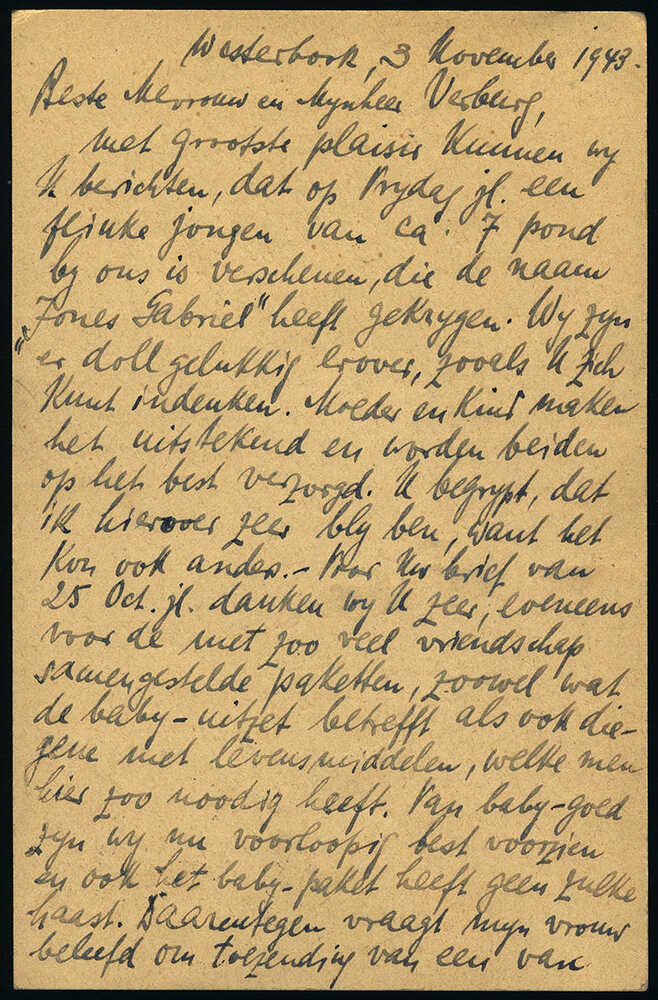 Westerbork, 3 November 1943.
Beste Mevrouw en Mynheer Verburg,
met grootste plaisir kunnen wy
U berichten, dat op Vrydag jl. een
flinke jongen van ca. 7 pond
by ons is verschenen, die de naam
„Jones Gabriël" heeft gekrygen. Wy zyn
er doll gelukkig erover, zooals U zich
kunt indenken. Moeder en Kind maken
het uitstekend en worden beiden
op het best verzorgd. U begrypt, dat
ik hierover zeer bly ben, want het
kon ook anders. – Voor Uw brief van
25 Oct. jl. danken wy U zeer, eveneens
voor de met zoo veel vriendschap
samengestelde paketten, zoowel wat
de baby-uitzet betrefft als ook die-
gene met levensmiddelen, welke men
hier zoo noodig heeft. Van baby-goed
zyn wy nu voorloopig best voorzien
en ook het baby-paket heeft geen zulke
haast. Daarentegen vraagt myn vrouw
beleefd om toezending van een van